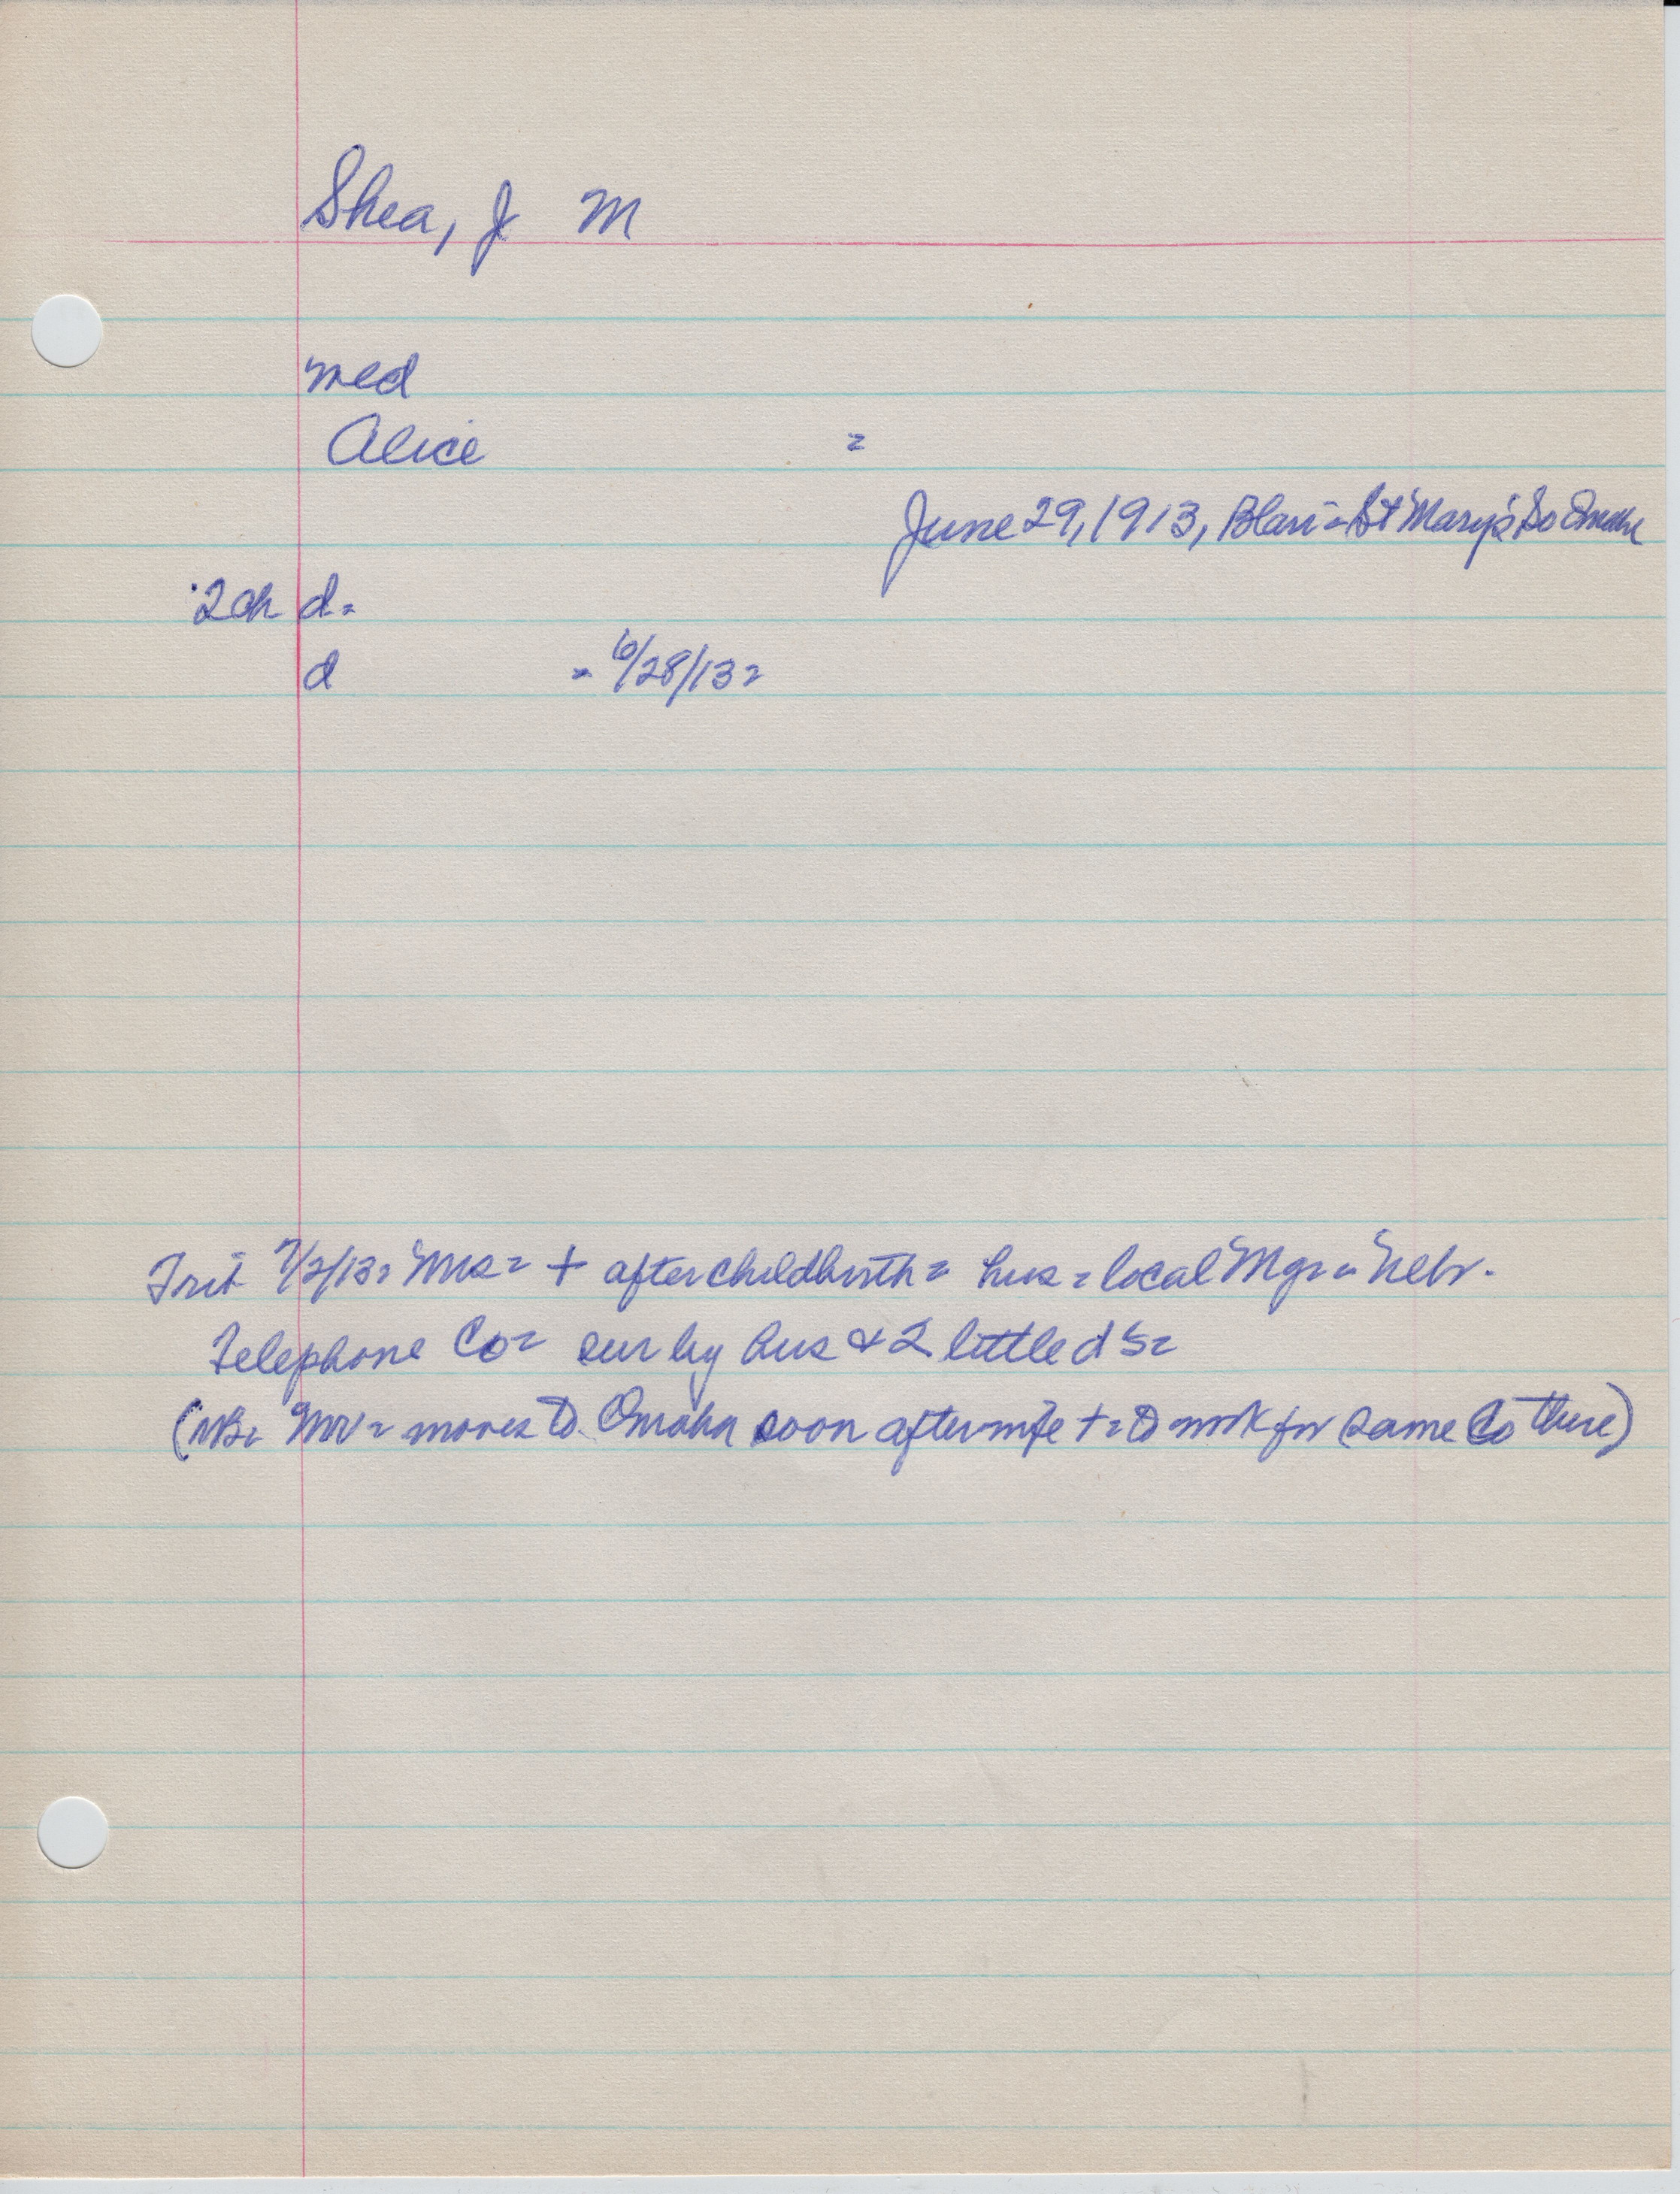 Shea, J M
med
Alice =
June 29, 1913, Blair = St Mary's So Omaha
2ch d =
d = 6/28/13 =
Trib 7/2/13 = Mrs = + after childbirth = hus = local Mgr = Nebr.
Telephone Co = sur by hus & 2 little d's =
(NB = Mr = moves to Omaha soon after wife + = to work for same Co there)